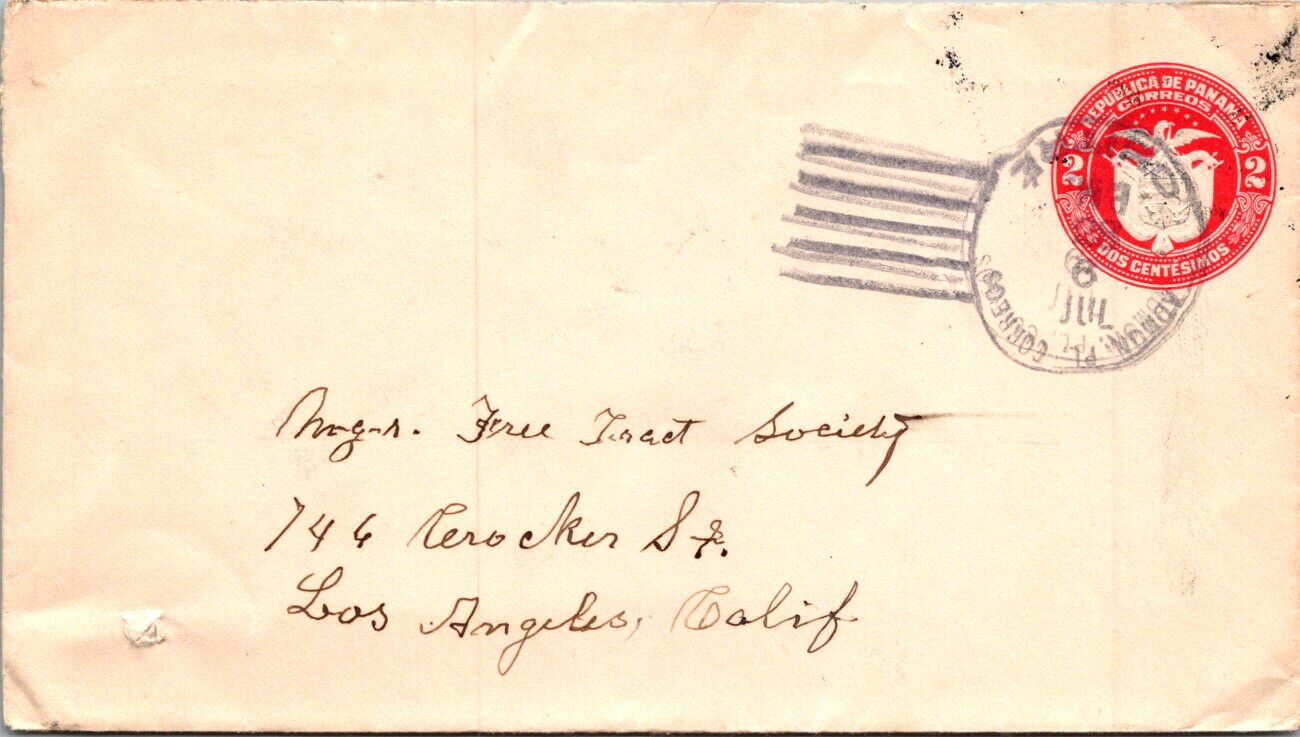 REPUBLICA DE PANAMA
CORREOS
2 2
DOS CENTÉSIMOS
CORREOS
Mgr. Free Tract Society
746 Crocker St.
Los Angeles, Calif